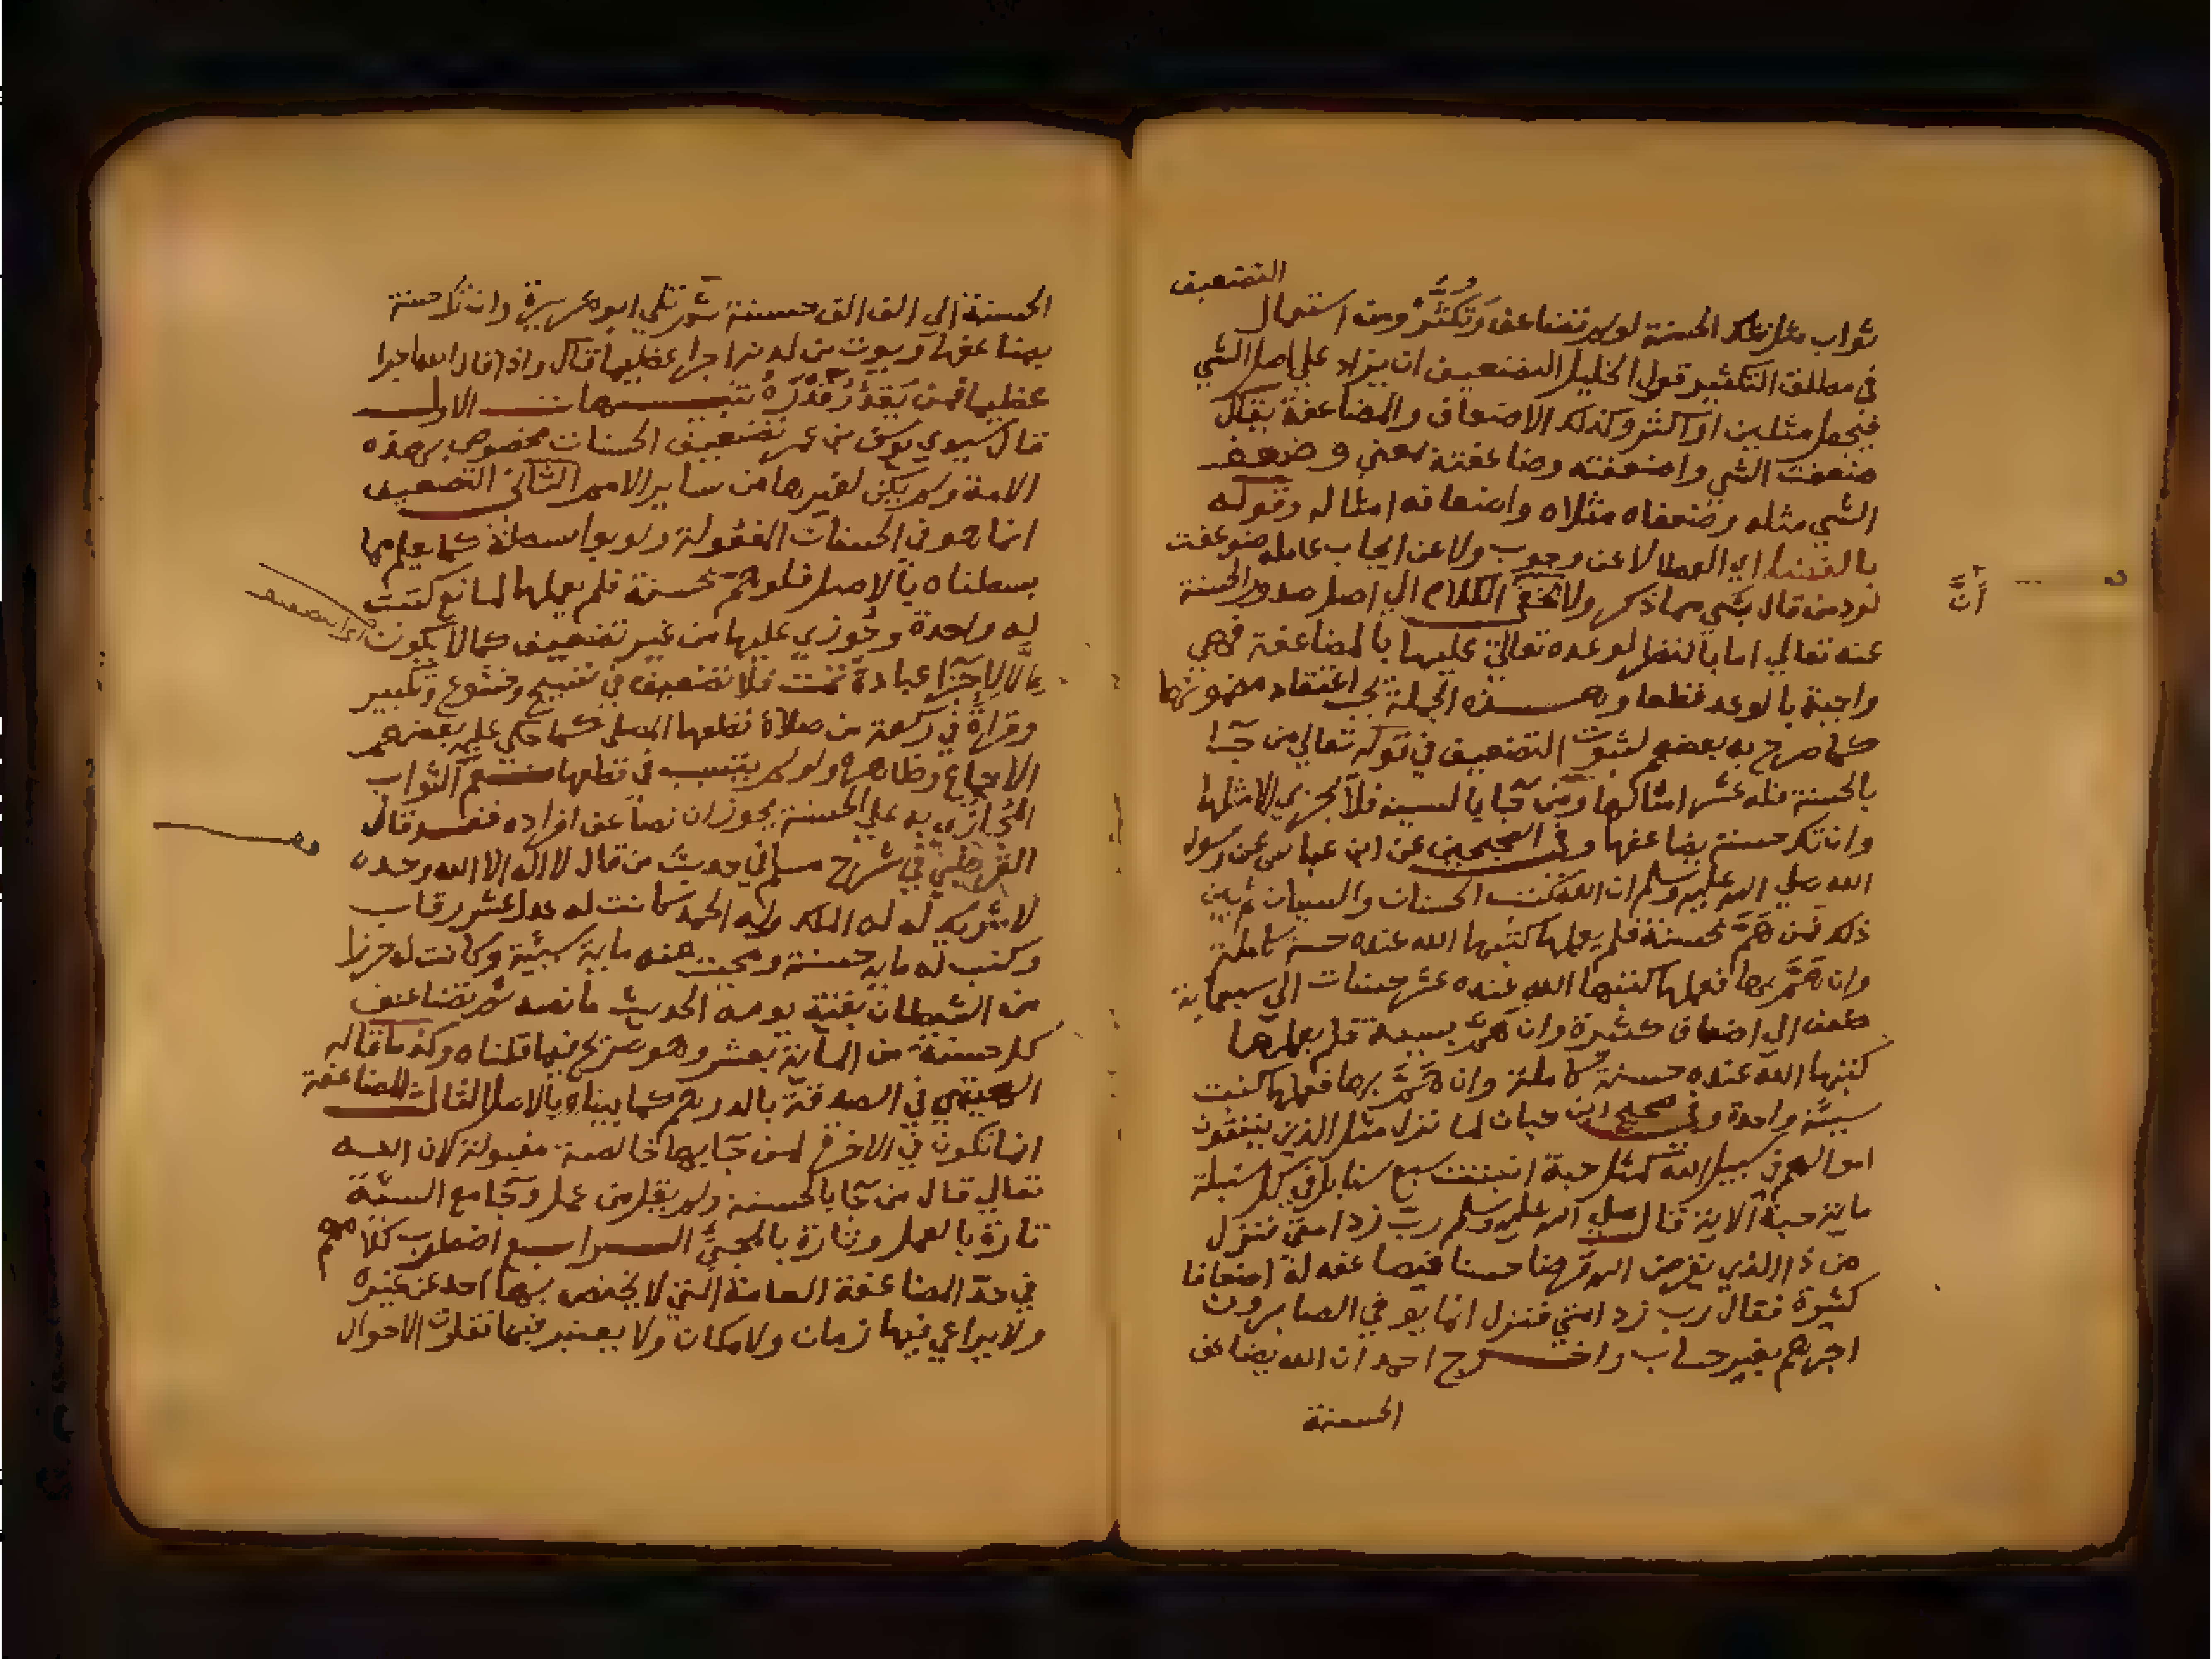 التضعيف
ثواب مثل تلك الحسنة لو لم تضاعف وتكثر ومن استعمال
في مطلق التكثير قول الخليل التضعيف ان يزاد علي اصل الشي
فيجعل مثلين او اكثر وكذلك الاضعاف والمضاعفة يقال
ضعفت الشي واضعفته وضاعفته بمعني وضعف
الشي مثله وضعفاه مثلاه واضعافه امثاله وقوله
بالفضل اي العطا لا عن وجوب ولا عن ايجاب عامله ضوعفت
لرد من قال بشي مما ذكر ولا يخفي الكلام الي اصل صدور الحسنة
أنَّ
عنه تعالي اما بالنظر لوعده تعالي عليها بالمضاعفة فهي
واجبة بالوعد قطعا وهذه الجملة يجب اعتقاد مضمونها
كما صرح به بعضهم لثبوت التضعيف في قوله تعالي من جآ
بالحسنة فله عشر امثالها ومن جآ بالسيية فلا يجزي الا مثلها
وان تك حسنة يضاعفها وفي الصحيحين عن ابن عباس عن رسول
الله صلي الله عليه وسلم ان الله كتب الحسنات والسيات ثم بين
ذلك فمن هَمَّ بحسنة فلم يعملها كتبها الله عنده حسنة كاملة
وان هَمَّ بها فعملها كتبها الله عنده عشر حسنات الي سبعماية
ضعف الي اضعاف كثيرة وان همَّ بسيية فلم يعملها
كتبها الله عنده حسنة كاملة وان هَمَّ بها فعملها كتبت
سيئة واحدة وفي صحيح ابن حبان لما نزل مثل الذين ينفقون
اموالهم في سبيل الله كمثل حبة انبتت سبع سنابل في كل سنبلة
ماية حبة الاية قال صلي الله عليه وسلم ربّ زد امتي فنزل
من ذا الذي يقرض الله قرضا حسنا فيضاعفه له اضعافا
كثيرة فقال رب زد امتي فنزل انما يوفي الصابرون
اجرهم بغير حساب واخرج احمد ان الله يضاعف
الحسنة
الحسنة الي الف الف حسنة ثم تلي ابو هريرة وان تك حسنة
يضاعفها ويوت من لدنه اجرا عظيما قال واذا قال الله اجرا
عظيما فمن يَقْدُرُ قَدْرَهُ تنبيهات الاول
قال سيدي يوسف بن عمر تضعيف الحسنات مخصوص بهذه
الامة ولم يكن لغيرها من ساير الامم الثاني التضعيف
انما هو في الحسنات المفعولة ولو بواسطة كما يعلم مما
بسطناه بالاصل فلو همّ بحسنة فلم يعملها لمانع كتبت
له واحدة وجُوزي عليها من غير تضعيف كما لا يكون
اي التضعيف
عبادة تمت فلا تضعيف في تسبيح وخشوع وتكبير
وقراة في ركعة من صلاة قطعها المصلي كما حكي عليه بعضهم
الاجماع وظاهره ولو لم يتسبب في قطعها الثواب
المجازَى به علي الحسنة يجوز ان تضاعف افراده فقد قال
القرطبي في شرح مسلم في حديث من قال لا اله الا الله وحده
لا شريك له له الملك وله الحمد كانت له عدل عشر رقاب
وكتب له ماية حسنة ومحيت عنه ماية سيئة وكانت له حرزا
من الشيطان بقية يومه الحديث ما نصه ثم تضاعف
كل حسنة من الماية بعشر وهو صريح فيما قلناه وكذا ما قاله
في الصدقة بالدرهم كما بيناه بالاصل الثالث المضاعفة
انما تكون في الاخرة لمن جآ بها خالصة مقبولة لان الله
تعالي قال من جآ بالحسنة ولم يقل من عمل وجآ مع السيئة
تارة بالعمل وتارة بالمجيئ الرابع اضطرب كلامهم
في حدّ المضاعفة العامة التي لا يختص بها احد عن غيره
ولا يراعي فيها زمان ولا مكان ولا يعتبر فيها تفاوت الاحوال